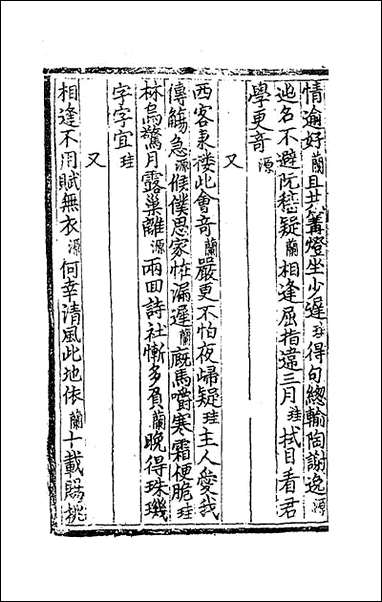 情逾好蘭且共篝燈坐少遲珪得句總輸陶謝逸源
逃名不避阮嵇疑蘭相逢屈指違三月珪拭目看君
學更奇源
又
西客東樓此會奇蘭嚴更不怕夜歸疑珪主人愛我
傳觴急源候僕思家怪漏遲蘭廐馬嚼寒霜梗脆珪
林烏驚月露巢離源兩回詩社慚多負蘭晚得珠璣
字字宜珪
又
相逢不用賦無衣源何幸清風此地依蘭十載賜桃